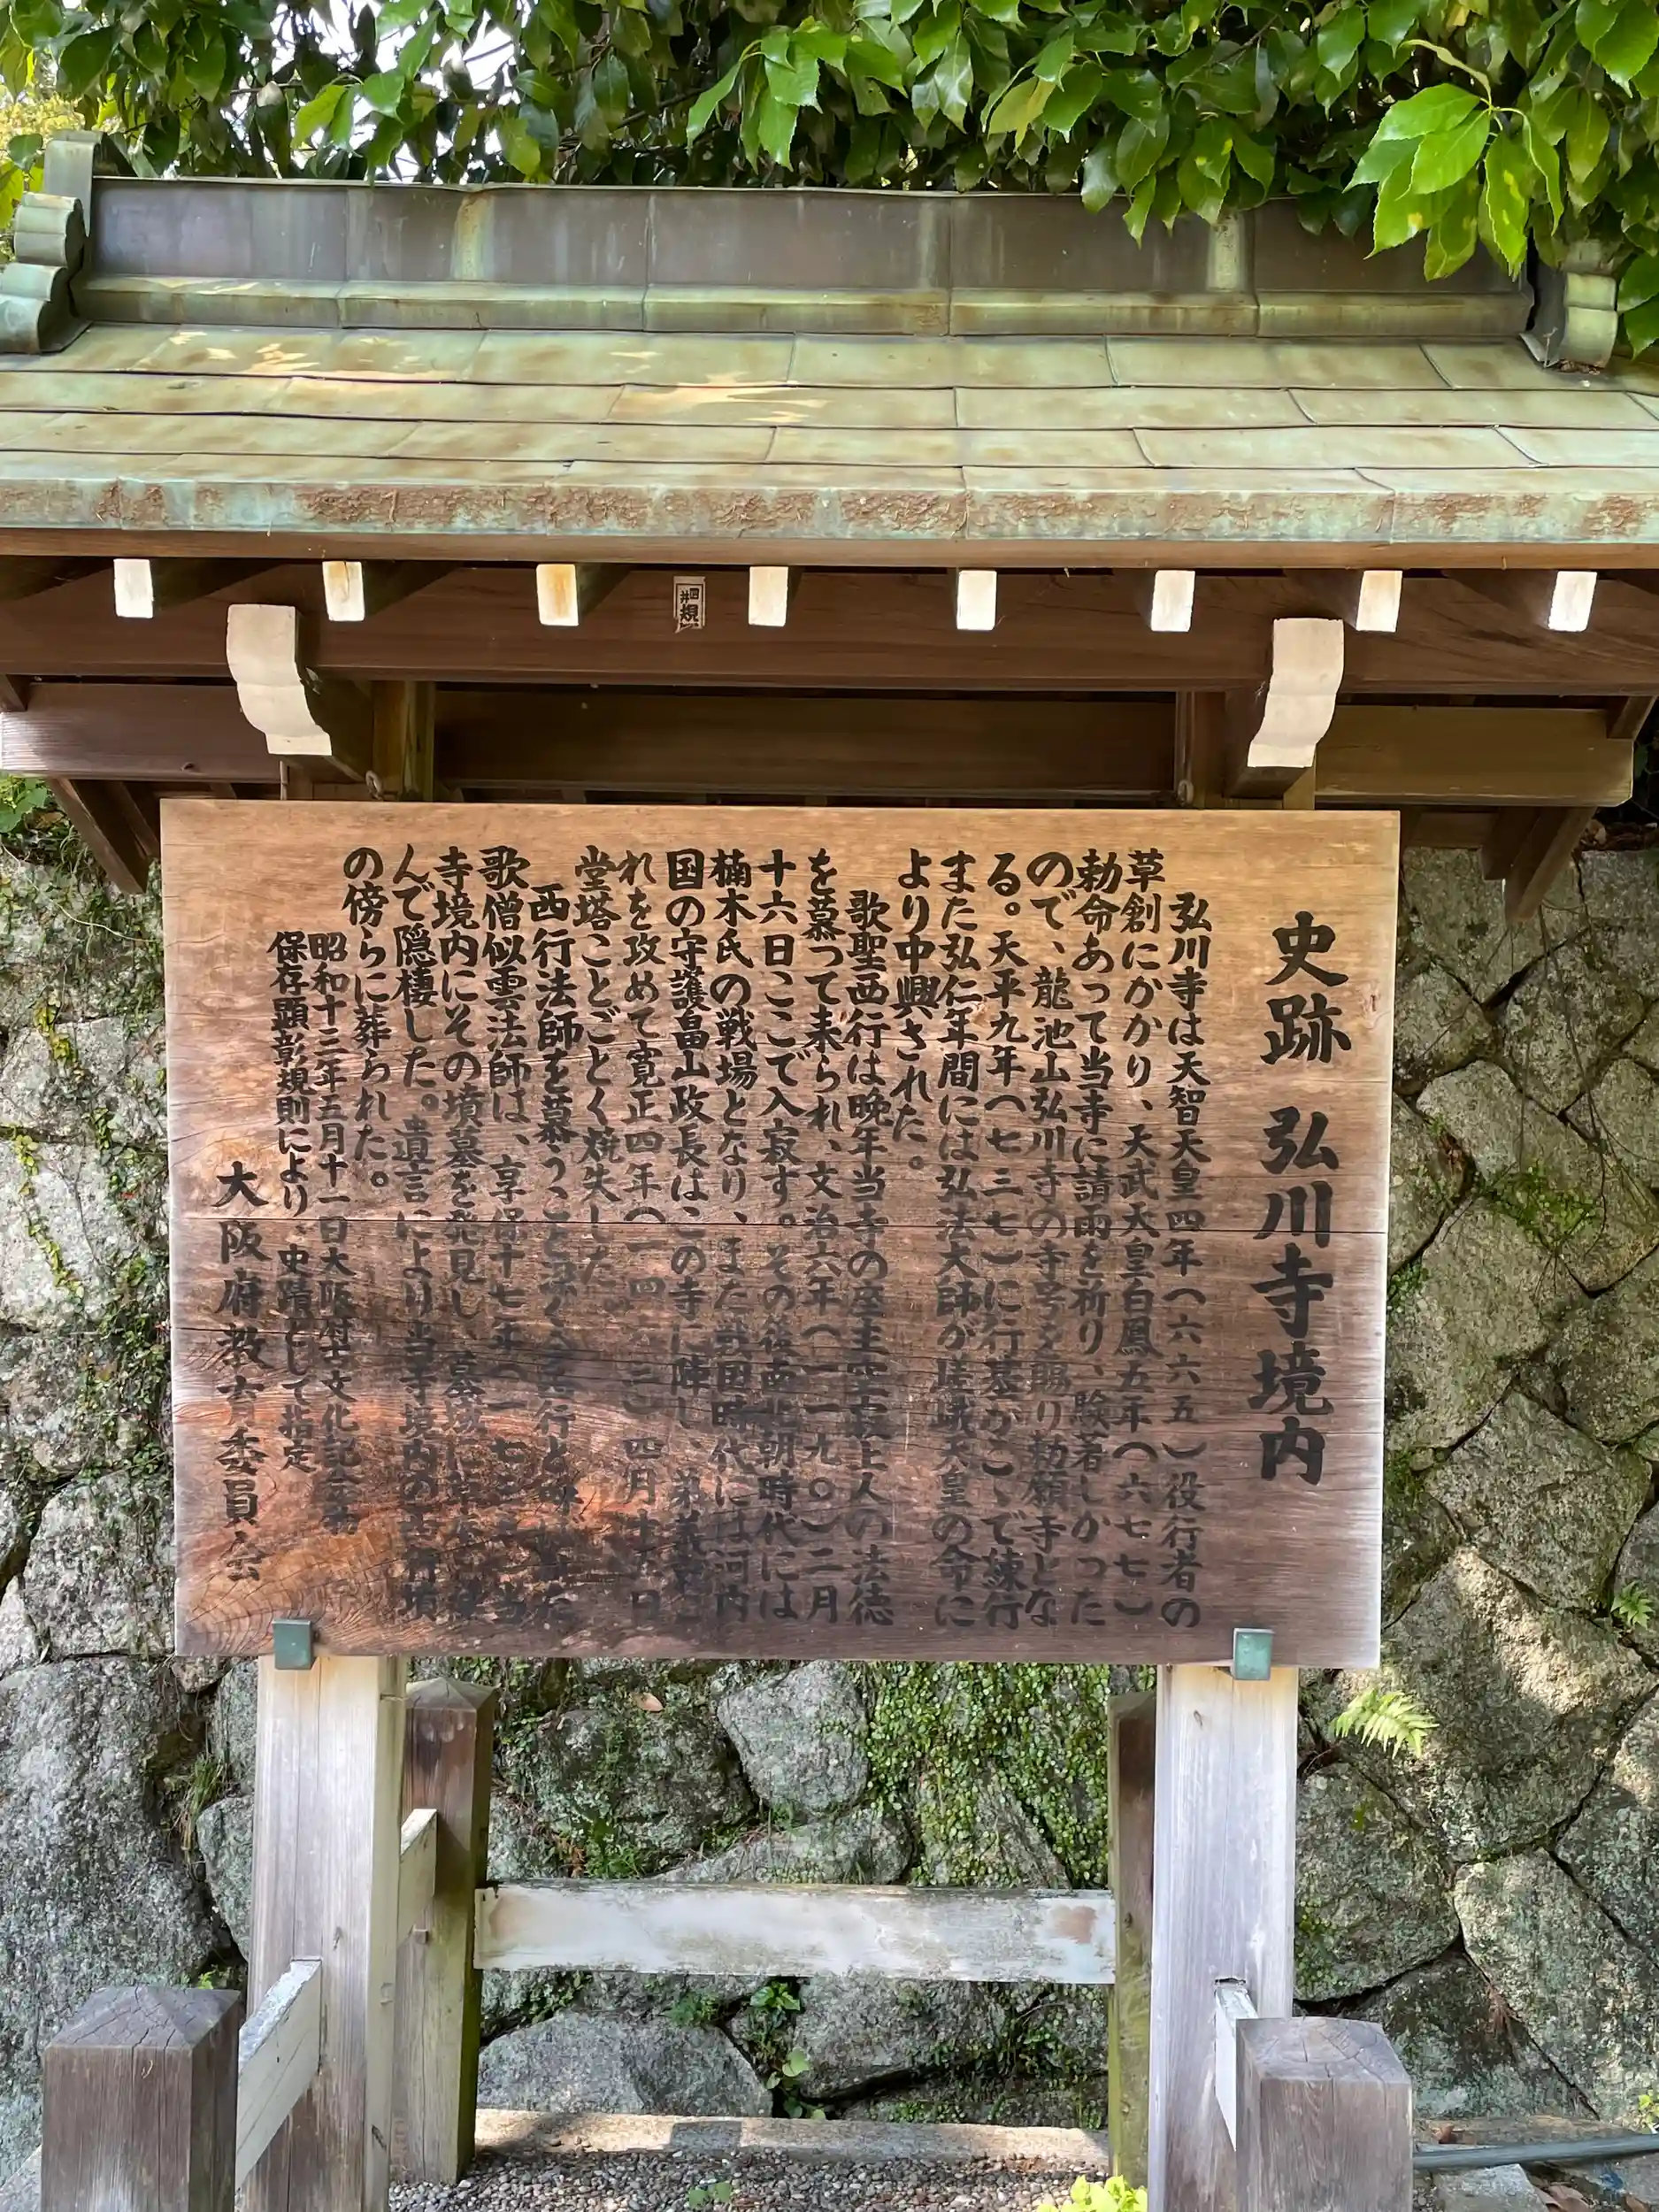 史跡 弘川寺境内
弘川寺は天智天皇四年(六六五)役行者の
草創にかかり、天武天皇白鳳五年(六七七)
勅命あって当寺に請雨を祈り、験著しかった
ので、龍池山弘川寺の寺号を賜り勅願寺とな
る。天平九年(七三七)に行基がこゝで練行
また弘仁年間には弘法大師が嵯峨天皇の命に
より中興された。
歌聖西行は晩年当寺の座主空寂上人の法徳
を慕って来られ、文治六年(一一九〇)二月
十六日ここで入寂す。その後南北朝時代には
楠木氏の戦場となり、また戦国時代には河内
国の守護畠山政長はこの寺に陣し、弟義就こ
れを攻めて寛正四年(一四六三)四月十五日
堂塔ことごとく焼失した。
西行法師を慕うこと深く今西行と
歌僧似雲法師は、享保十七年(一七三二)当
寺境内にその墳墓を発見し、墓域に
んで隠棲した。遺言により当寺境内の西行墳
の傍らに葬られた。
昭和十三年五月十一日大阪府古文化記念物
保存顕彰規則により、史蹟として指定
大阪府教育委員会